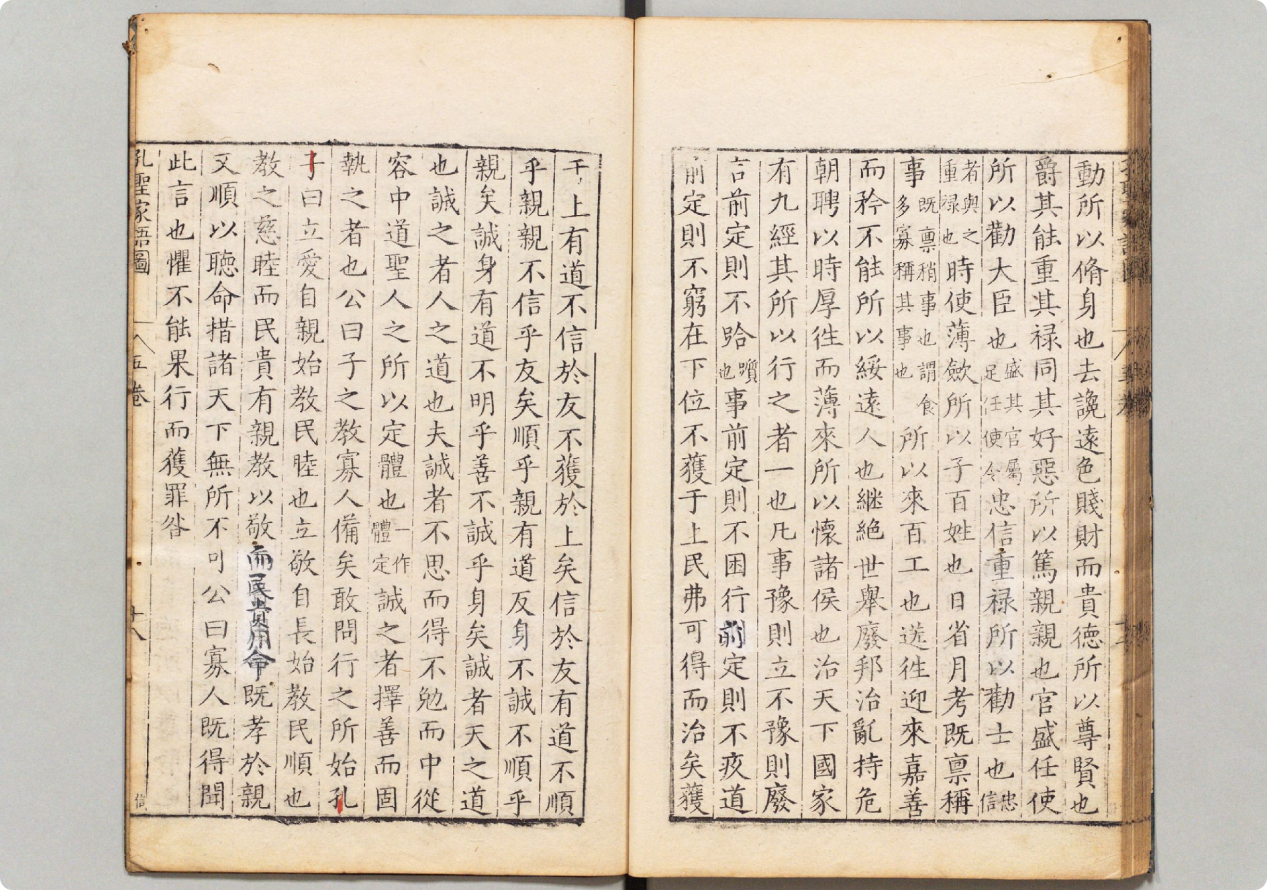 動所以脩身也去讒遠色賤財而貴徳所以尊賢也
爵其能重其禄同其好惡所以篤親親也官盛任使
所以勸大臣也盛其官屬足任使令忠信重禄所以勸士也忠信
者與之重禄也時使薄歛所以子百姓也日省月考既禀稱
事既禀稍事也謂食多寡稱其事也所以來百工也送徃迎來嘉善
而矜不能所以綏遠人也継絶世舉廢邦治亂持危
朝聘以時厚徃而薄來所以懷諸侯也治天下國家
有九經其所以行之者一也凡事豫則立不豫則廢
言前定則不跲躓也事前定則不困行前定則不疚道
前定則不窮在下位不獲于上民弗可得而治矣獲
于上有道不信於友不獲於上矣信於友有道不順
乎親親不信乎友矣順乎親有道反身不誠不順乎
親矣誠身有道不明乎善不誠乎身矣誠者天之道
也誠之者人之道也夫誠者不思而得不勉而中從
容中道聖人之所以定體也一作體定誠之者擇善而固
執之者也公曰子之教寡人備矣敢問行之所始孔
子曰立愛自親始教民睦也立敬自長始教民順也
教之慈睦而民貴有親教以敬而民貴用命既孝於親
又順以聴命措諸天下無所不可公曰寡人既得聞
此言也懼不能果行而獲罪咎
孔聖家語圖 五卷 十八